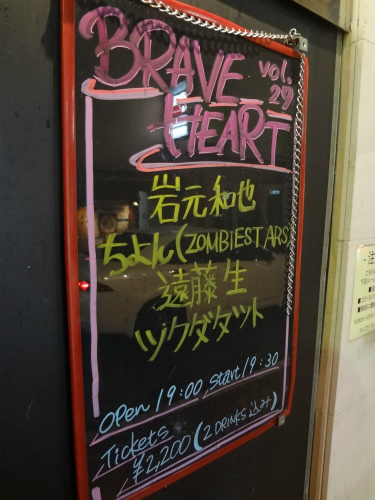 BRAVE vol.
29
HEART
岩元和也
ちよん(ZOMBIESTARS
遠藤生
ツクダタット
open 19:00 start 19:30
Tickets
¥2,200(2DRINKS込み)